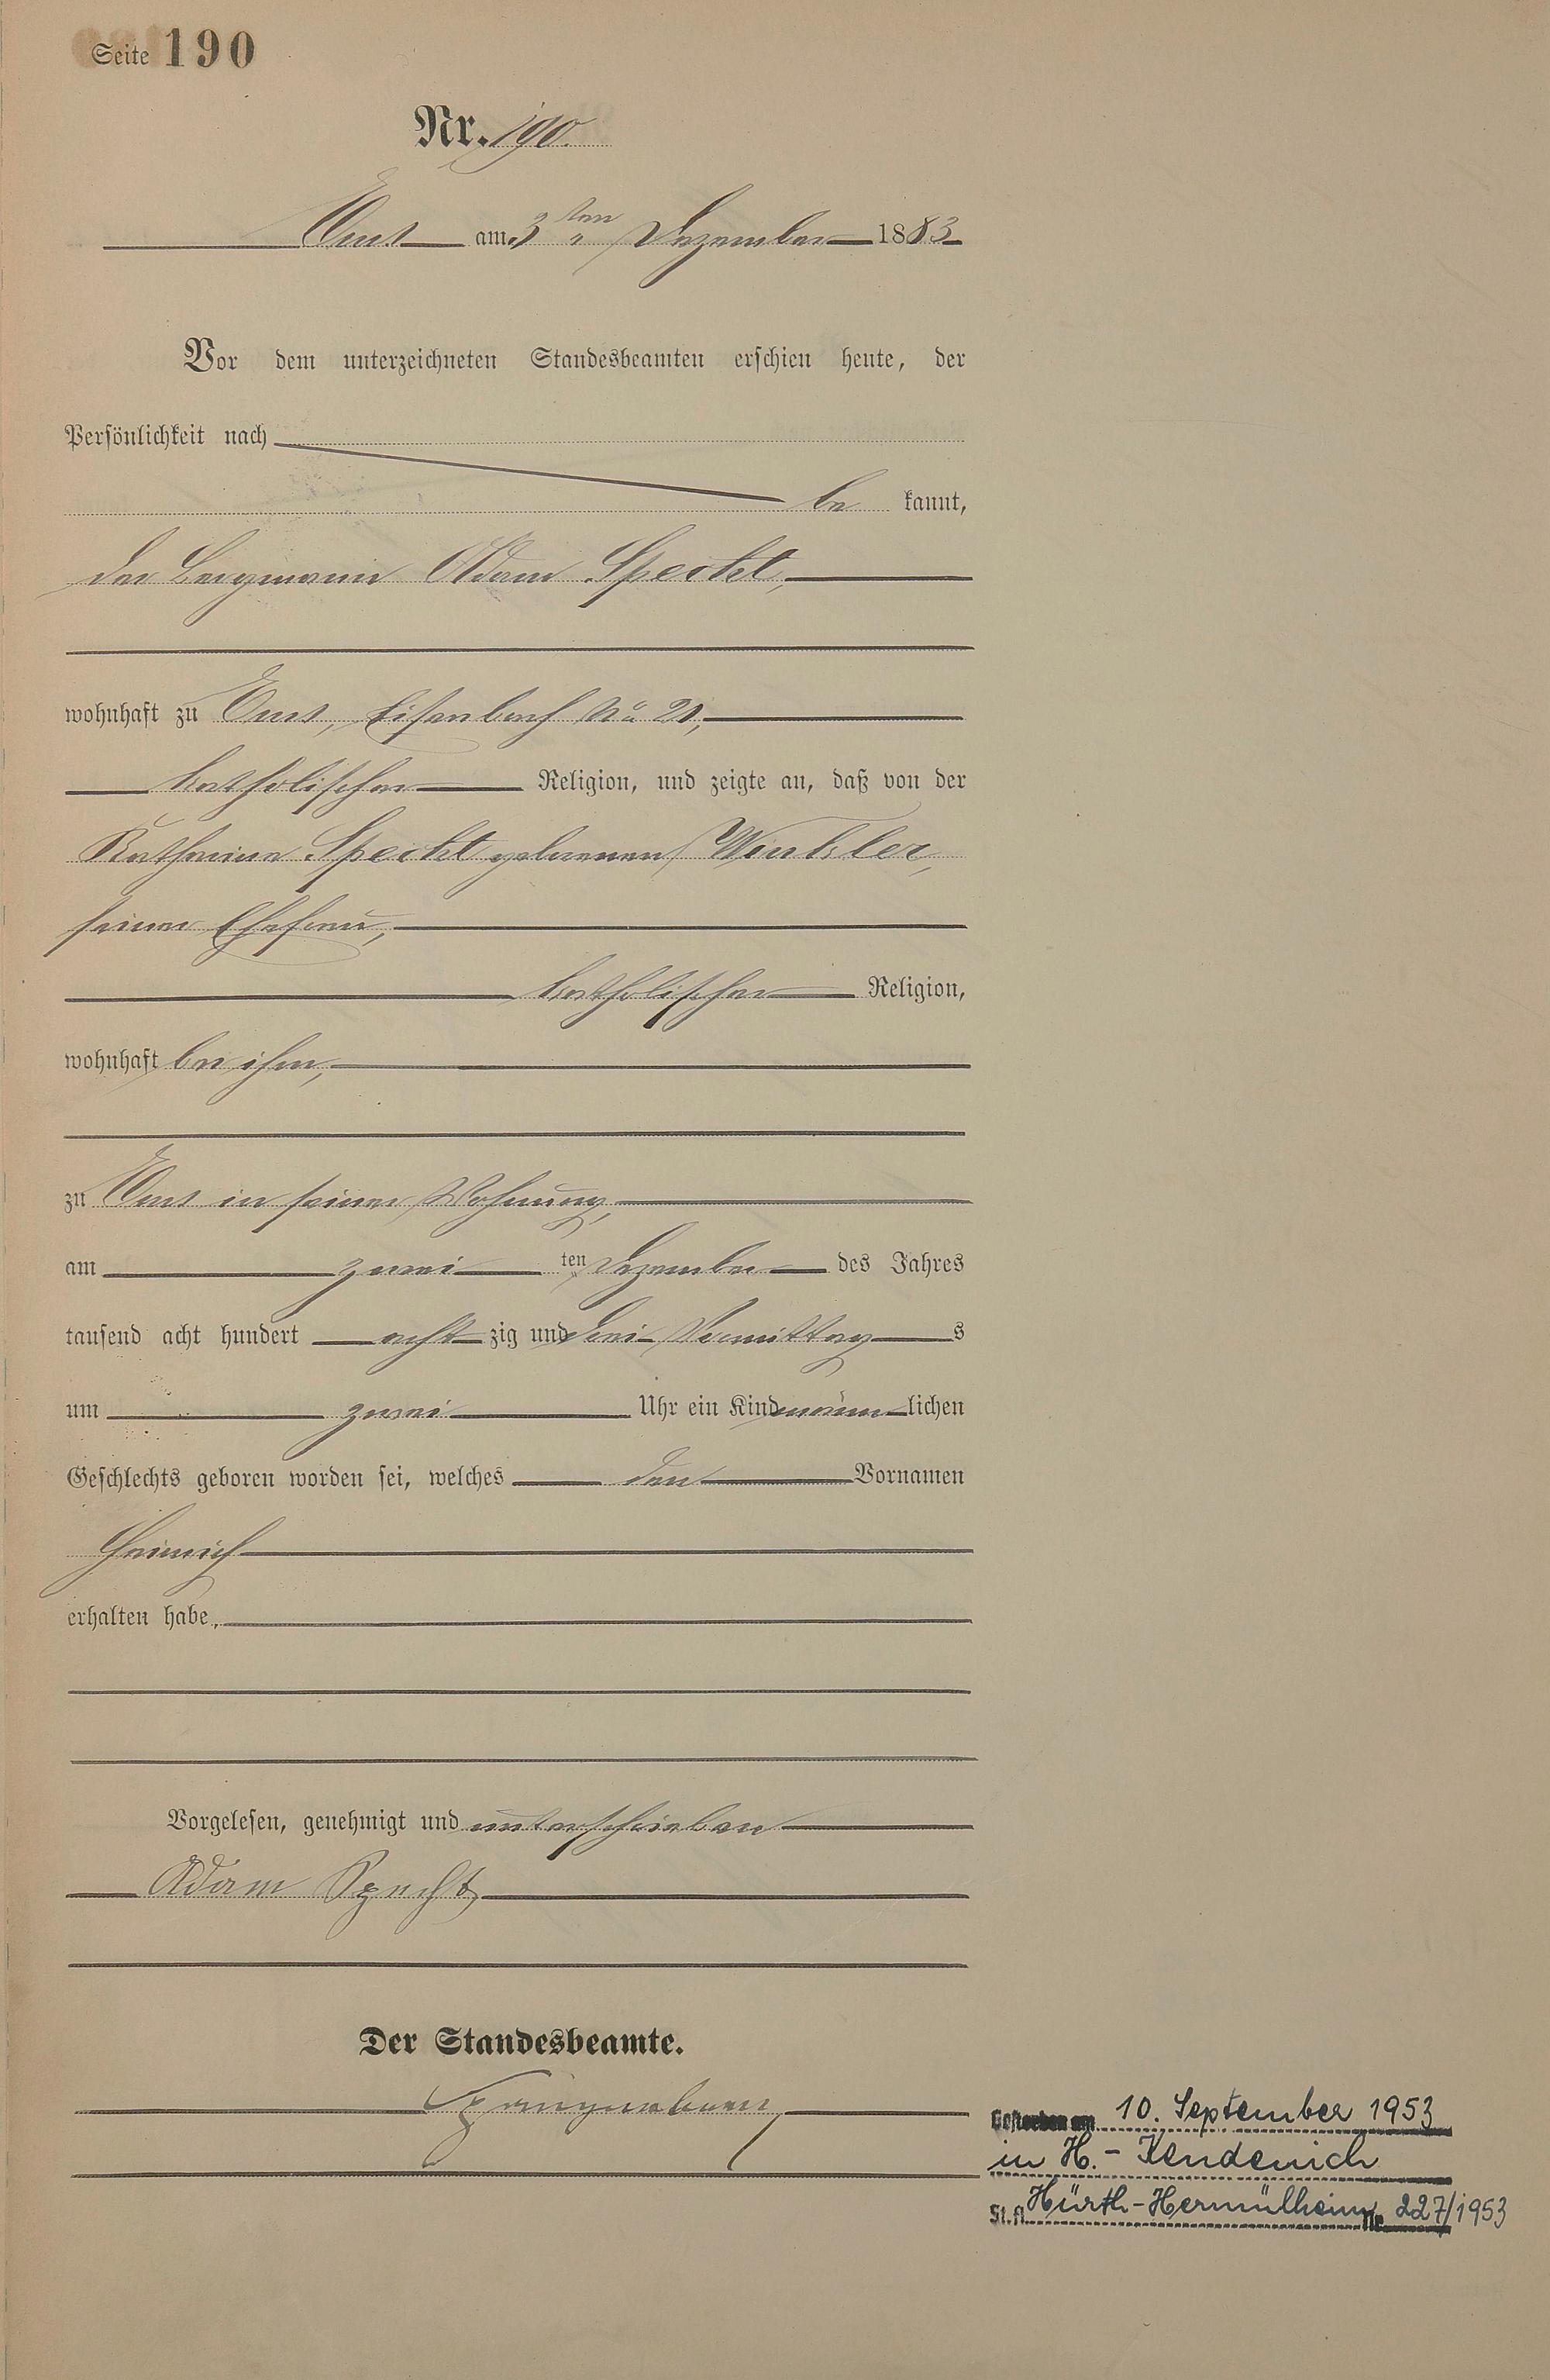 Seite 190
Nr. 190.
Ems am 3ten Dezember 1883
Vor dem unterzeichneten Standesbeamten erschien heute, der
Persönlichkeit nach
be kannt,
der Bergmann Adam Specht,
wohnhaft zu Ems, Eisenbach No 21,
katholischer Religion, und zeigte an, daß von der
Katharina Specht geborenen Winkler,
seiner Ehefrau,
katholischer Religion,
wohnhaft bei ihm,
zu Ems in seiner Wohnung,
am zwei ten Dezember des Jahres
tausend acht hundert acht zig und drei Vormittag s
um zwei Uhr ein Kind männ lichen
Geschlechts geboren worden sei, welches den Vornamen
Heinrich
erhalten habe,
Vorgelesen, genehmigt und unterschrieben
Adam Specht
Der Standesbeamte.
Gestorben am 10. September 1953
in H.-Kendenich
St.A. Hürth-Hermülheim Nr. 227/1953